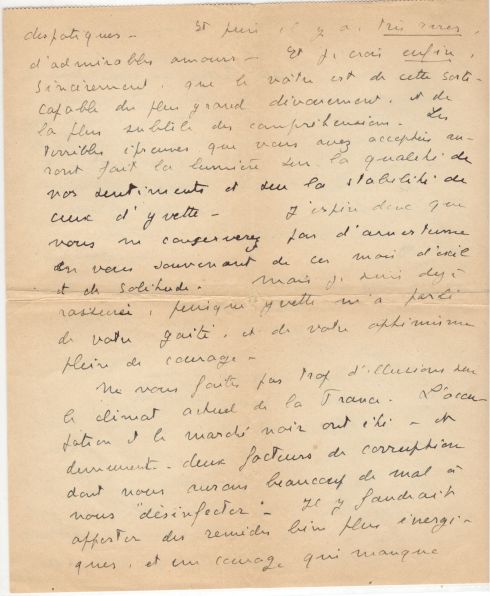 despotiques - Et puis il y a, très rares,
d'admirables amours - Et je crois enfin,
sincèrement, que le vôtre est de cette sorte -
capable du plus grand dévouement, et de
la plus subtile des compréhensions - Les
terribles épreuves que vous avez acceptées au-
ront fait la lumière sur la qualité de
vos sentiments et sur la stabilité de
ceux d'Yvette - J'espère donc que
vous ne conserverez pas d'amertume
en vous souvenant de ces mois d'exil
et de solitude. Mais je suis déjà
rassurée, puisque Yvette m'a parlé
de votre gaîté, et de votre optimisme
plein de courage -
Ne vous faites pas trop d'illusions sur
le climat actuel de la France. L'occu-
pation et le marché noir ont été - et
demeurent - deux facteurs de corruption
dont nous aurons beaucoup de mal à
nous "désinfecter" - Il y faudrait
apporter des remèdes bien plus énergi-
ques, et un courage qui manque